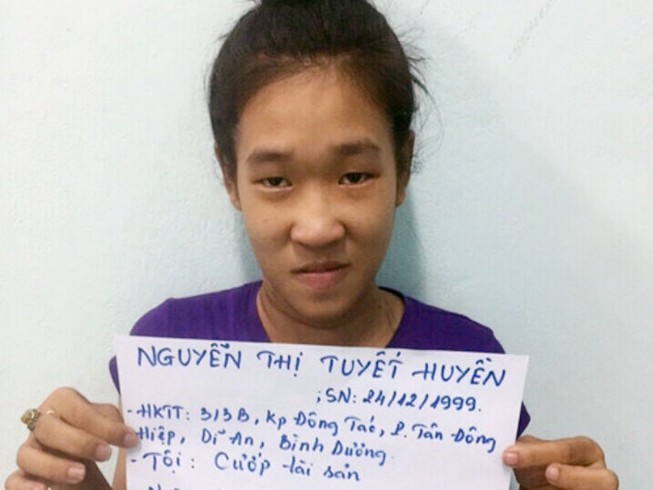 NGUYỄN THỊ TUYẾT HUYỀN
; SN: 24/12/1999.
- HKTT: 313B, Kp Đông Tác, P. Tân Đông
Hiệp, Dĩ An, Bình Dương
- Tội: Cướp tài sản